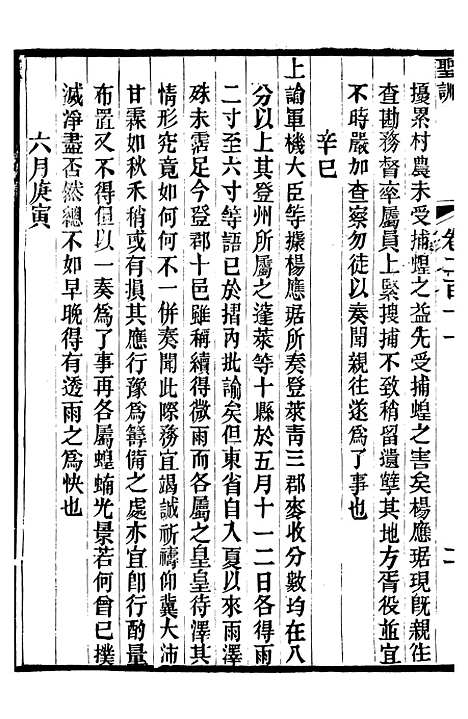 聖訓
卷二百十一
擾累村農未受捕蝗之益先受捕蝗之害矣楊應琚現既親往
查勘務督率屬員上緊搜捕不致稍留遺孽其地方胥役並宜
不時嚴加查察勿徒以奏聞親往遂為了事也
辛巳
上諭軍機大臣等據楊應琚所奏登萊青三郡麥收分數均在八
分以上其登州所屬之蓬萊等十縣於五月十一二日各得雨
二寸至六寸等語已於摺內批諭矣但東省自入夏以來雨澤
殊未霑足今登郡十邑雖稱續得微雨而各屬之皇皇待澤其
情形究竟如何何不一併奏聞此際務宜竭誠祈禱仰冀大沛
甘霖如秋禾稍或有損其應行豫為籌備之處亦宜即行酌量
布置又不得但以一奏為了事再各屬蝗蝻光景若何曾已撲
滅淨盡否然總不如早晚得有透雨之為快也
六月庚寅